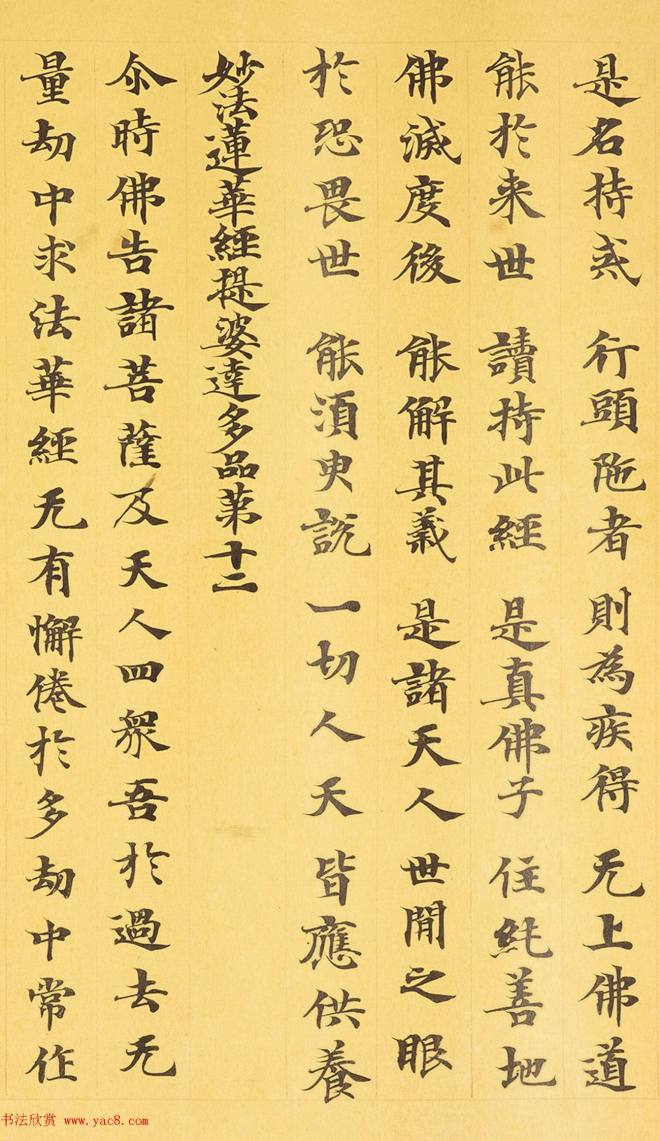 是名持戒 行頭陁者 則為疾得 无上佛道
能於来世 讀持此經 是真佛子 住純善地
佛滅度後 能解其義 是諸天人 世間之眼
於恐畏世 能須臾說 一切人天 皆應供養
妙法蓮華經提婆達多品第十二
尒時佛告諸菩薩及天人四衆吾於過去无
量劫中求法華經无有懈倦於多劫中常作
书法欣赏 www.yac8.com